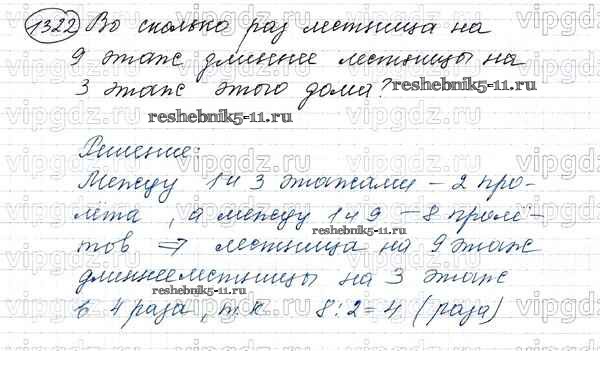 1322 Во сколько раз лестница на
9 этаж длиннее лестницы на
3 этаж этого дома?
reshebnik5-11.ru
reshebnik5-11.ru
Решение:
Между 1 и 3 этажами – 2 про-
лёта, а между 1 и 9 – 8 пролё-
reshebnik5-11.ru
тов ⇒ лестница на 9 этаж
длиннее лестницы на 3 этаж
reshebnik5-11.ru
в 4 раза, т.к 8:2=4 (раза)
vipgdz.ru